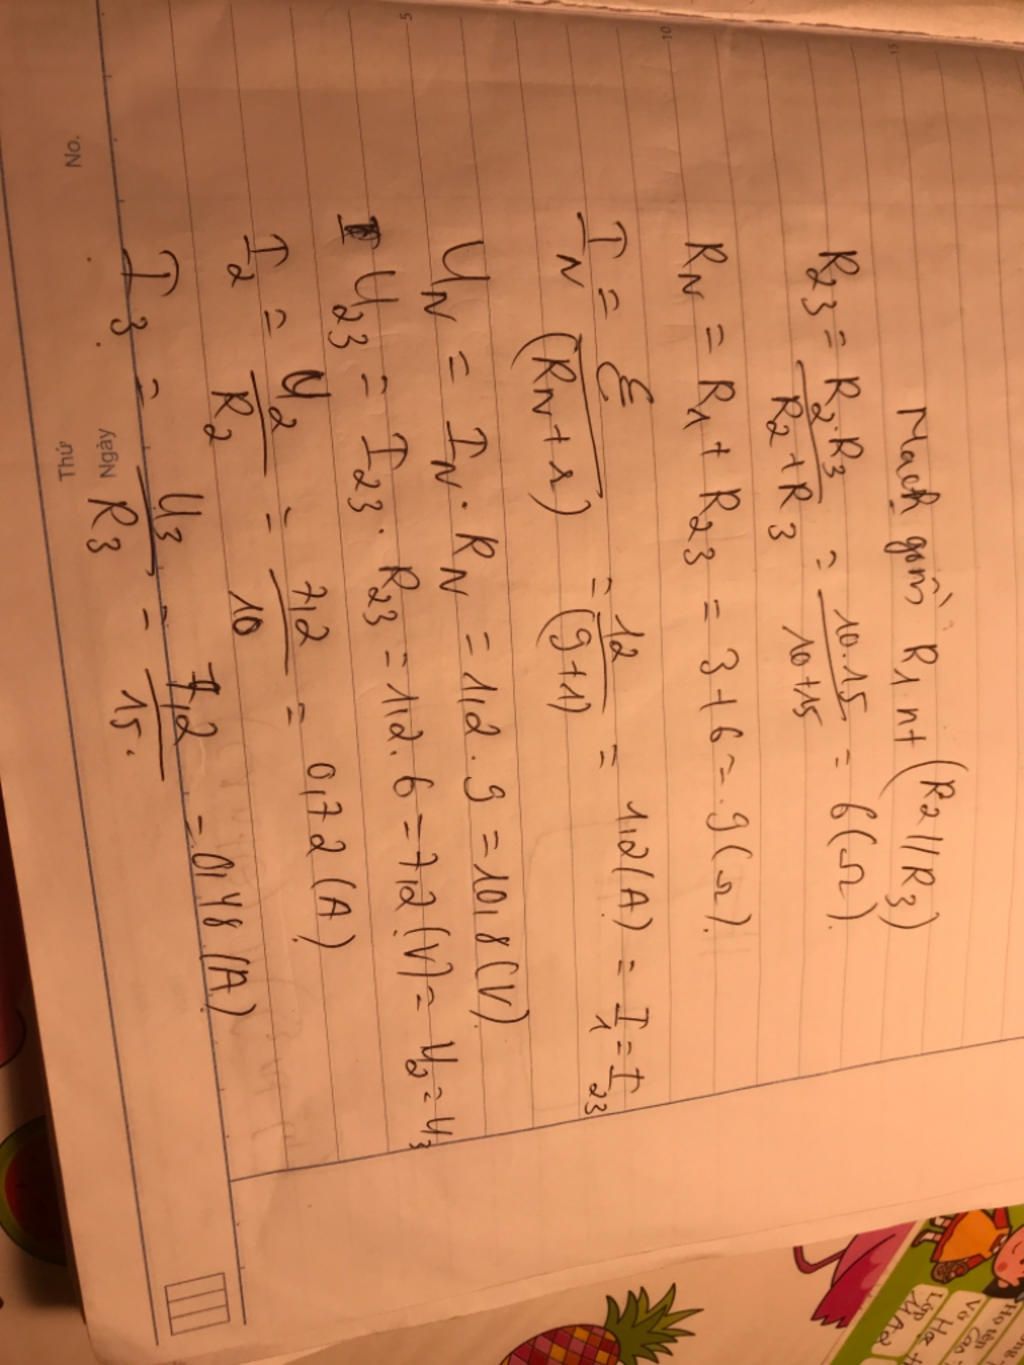 Mạch gồm R1 nt (R2//R3)
R23 = R2.R3 / R2+R3 = 10.15 / 10+15 = 6(Ω).
RN = R1 + R23 = 3+6 = 9(Ω).
IN = ℰ / (RN+r) = 12 / (9+1) = 1,2(A) = I1 = I23
UN = IN . RN = 1,2 . 9 = 10,8(V).
U23 = I23 . R23 = 1,2 . 6 = 7,2(V) = U2 = U3
I2 = U2 / R2 = 7,2 / 10 = 0,72(A)
I3 = U3 / R3 = 7,2 / 15 = 0,48(A)
No.
Thứ
Ngày
5
10
15
Họ tên
Lớp